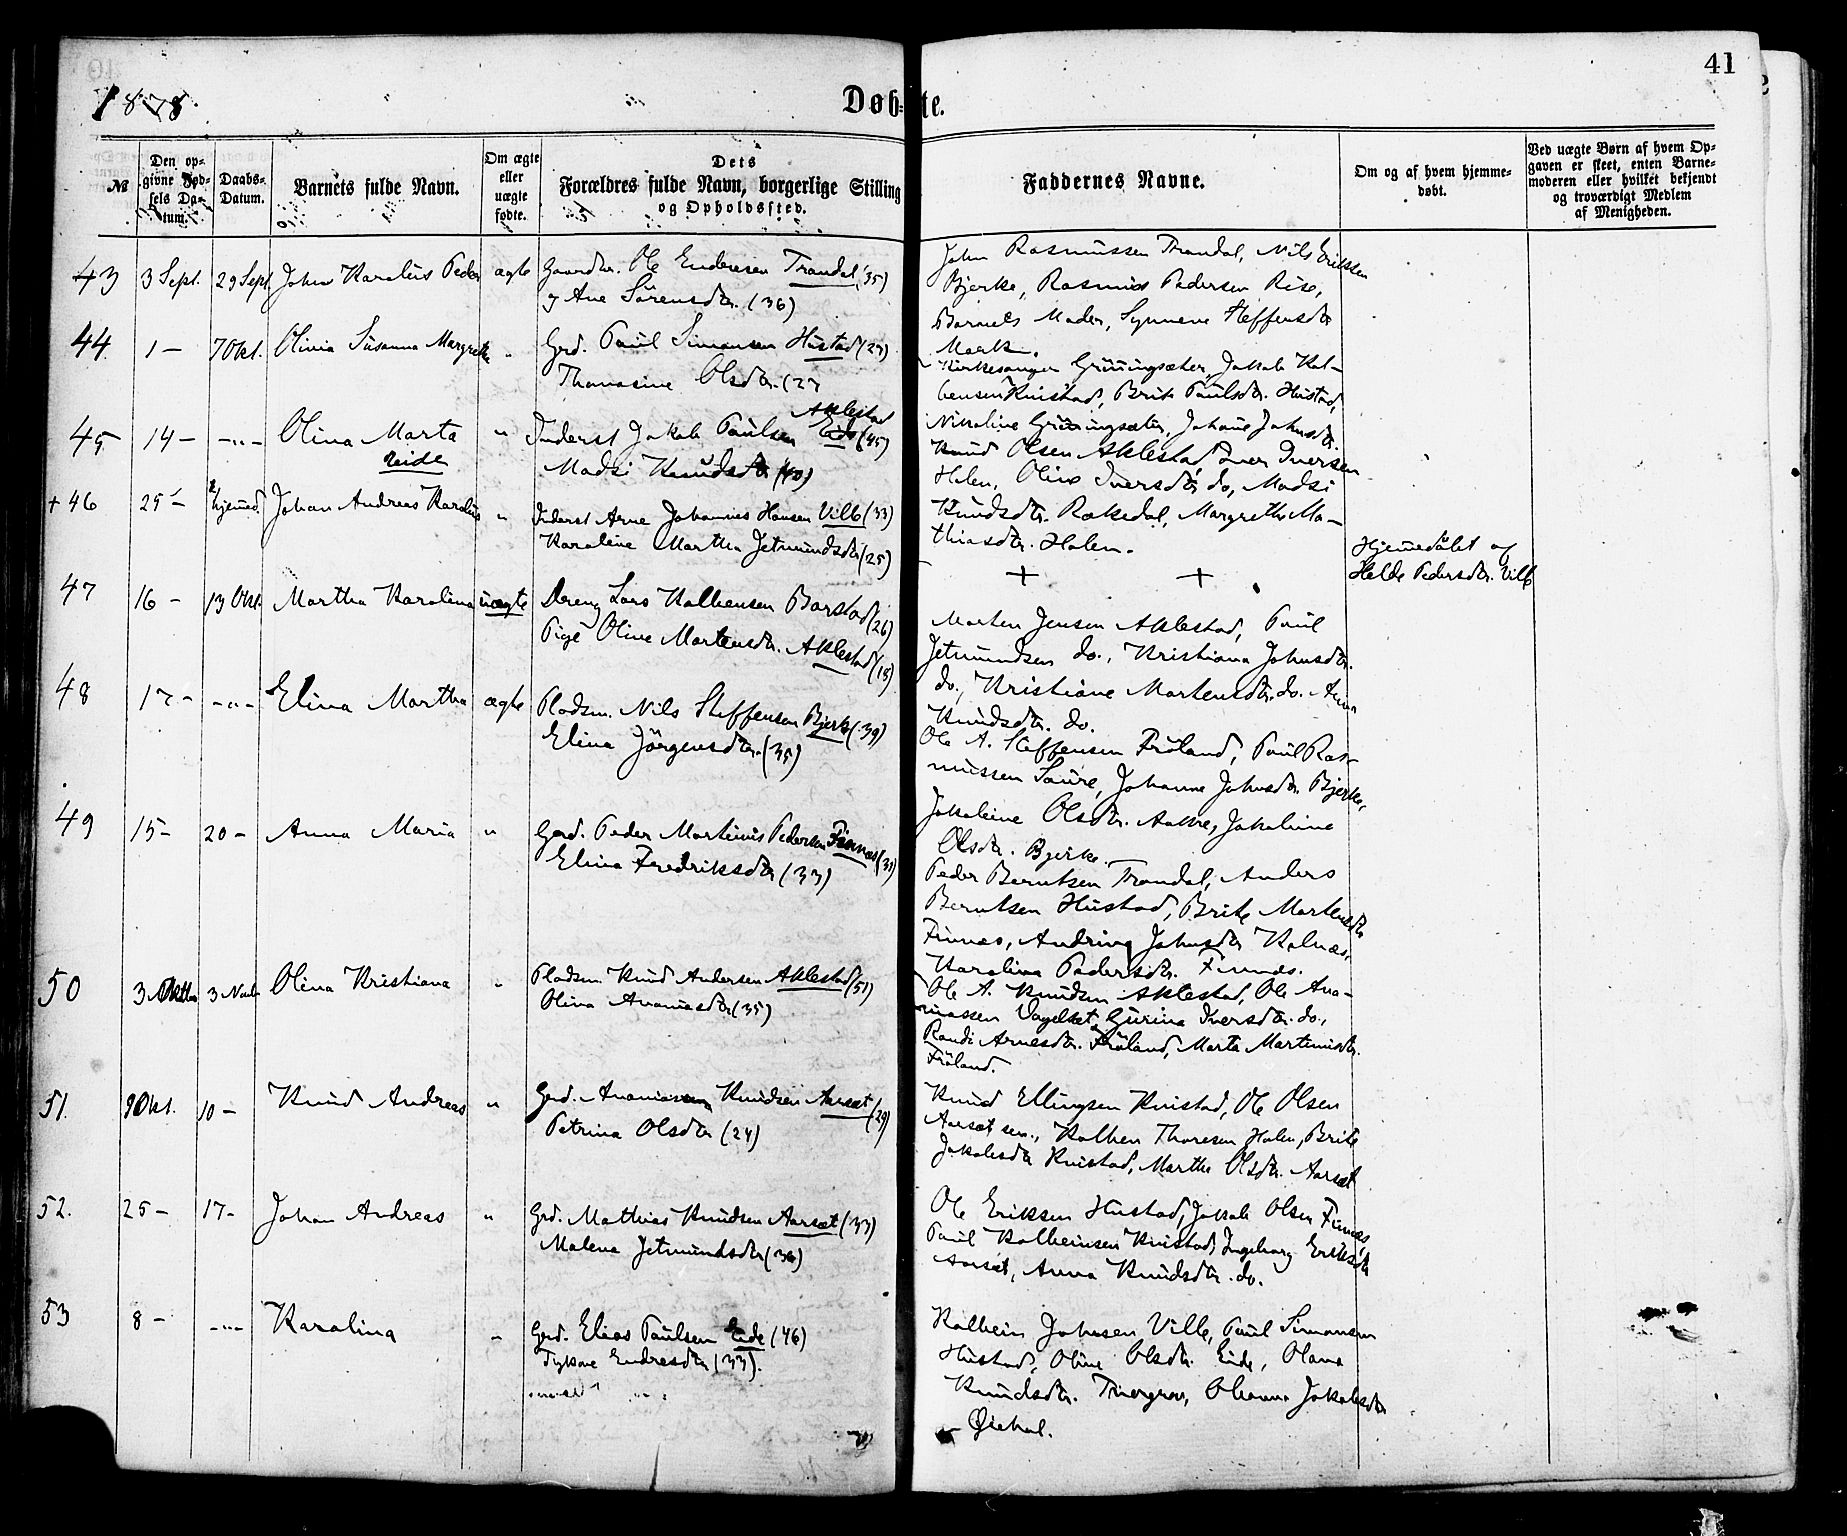 41
1878.
Døbte.
№
Den opgivne Fødsels Datum.
Daabs-Datum.
Barnets fulde Navn.
Om ægte eller uægte fødte.
Dets Forældres fulde Navn, borgerlige Stilling og Opholdssted.
Faddernes Navne.
Om og af hvem hjemmedøbt.
Ved uægte Børn af hvem Opgaven er skeet, enten Barnemoderen eller hvilket bekjendt og troværdigt Medlem af Menigheden.
43 3 Sept. 29 Sept. John Karolus Peder ægte Gaardbr. Ole Endresen Trandal (35)
og Ane Sörensdtr. (36)
John Rasmussen Trandal, Nils Eriksen
Bjerke, Rasmus Pedersen Rise,
Barnets Moder, Synneve Steffensdtr
Maak.
44 1 — 7 Okt. Olivia Susanna Margrethe " Grd. Paul Simonsen Hustad (27)
Thomasine Olsdtr. (27
Kirkesanger Grönningsæter, Jakob Kol-
bensen Knistad, Brite Paulsdtr. Hustad,
Nikoline Grönningsæter, Johane Johnsdtr.
45 14 — —"— Olina Marta " Inderst Jakob Paulsen Eide (45)
Aklestad
Eide
Madsi Knudsdtr (40)
Knud Olsen Aklestad, Iver Iversen
Holen, Oline Iversdtr do, Madsi
Knudsdtr. Rækedal, Margrethe Ma-
thiasdtr. Holen.
+ 46 25 — hjemmed. Johan Andreas Karolus " Inderst Arne Johannes Hansen Villb (33)
Karoline Martha Jetmundsdtr (25)
+ +
Hjemmedöbt af
Helde Pedersdtr. Villb
47 16 — 13 Okt. Martha Karolina uægte Dreng Lars Kolbensen Barstad (26)
Pige Oline Martensdtr. Aklestad (18)
Morten Jensen Aklestad, Paul
Jetmundsen do., Kristiana Johnsdtr.
do., Kristiane Martensdtr. do. Anna
Knudsdtr. do.
48 17 — —"— Elina Martha ægte Pladsm. Nils Steffensen Bjerke (39)
Elina Jörgensdtr. (35)
Ole A. Steffensen Fröland, Paul Ras-
mussen Saure, Johanne Johnsdtr. Bjerke,
Jakobine Olsdtr. Aakre, Jakobine
Olsdtr. Bjerke.
49 15 — 20 — Anna Maria " Gard. Peder Martinus Pedersen Finnæs (31)
Elina Fredriksdtr (33)
Peder Berntsen Trandal, Anders
Berntsen Hustad, Brite Martensdtr
Finnæs, Andrine Johnsdtr Kolnæs,
Karolina Pedersdtr. Finnæs.
50 3 Oktbr 3 Novb. Olina Kristiana " Pladsm Knud Andersen Aklestad (51)
Olina Ananiasdtr (35)
Ole A. Knudsen Aklestad, Ole Ana-
niassen Vagelset, Gurina Iversdtr. do.,
Randi Arnesdtr. Fröland, Marta Martinusdtr.
Fröland.
51. 9 Okt. 10 — Knud Andreas " Grd. Ananias Knudsen Aarsæt (29)
Petrina Olsdtr (24)
Knud Ellingsen Knistad, Ole Olsen
Aarsæt sen., Kolben Thoresen Holen, Brite
Jakobsdtr Knistad, Marthe Olsdtr. Aarsæt
52. 25 — 17 — Johan Andreas " Grd. Mathias Knudsen Aarsæt (33)
Malena Jetmundsdtr (36)
Ole Eriksen Hustad, Jakob Olsen Finnæs
Paul Kolbeinsen Knistad, Ingeborg Eriksdtr
Aarsæt, Anna Knudsdtr. do.
53 8 — —"— Karolina " Grd. Elias Paulsen Eide (46)
Endresdtr (33).
Kolbein Johnsen Ville, Paul Simonsen
Hustad, Oline Olsdtr. Eide, Olava
Knudsdtr. Jakobsdtr